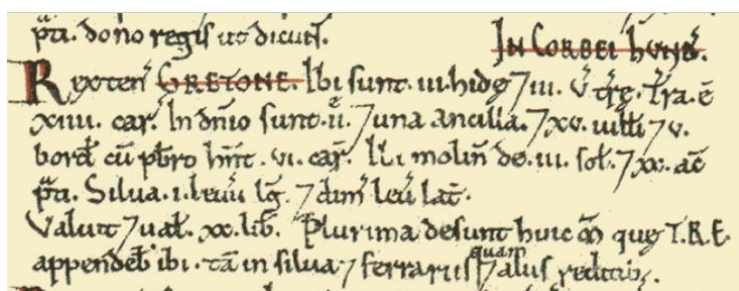 p̃ta. dono regis ut dicunt. IN CORBEI HVND'.
Rex ten' GRETONE. Ibi sunt .iii. hidę 7 iii. v̓ t̓rę. T̓ra ē
xiiii. car̓. In dñio sunt .ii. 7 una ancilla. 7 xv. uilłi 7 v.
borđ cū p̃bro hñt .vi. car̓. Ibi moliñ de .iii. soł. 7 xx. ac̄
p̃ti. Silua .i. leuu̓ lg̃. 7 dim̓ leu̓ lat̓.
Valuit 7 uał .xx. lib̓. Plurima desunt huic M̃ quę T.R.E.
appendeb̓ ibi. tā in silua 7 ferrariis quam 7 aliis redditib̓.